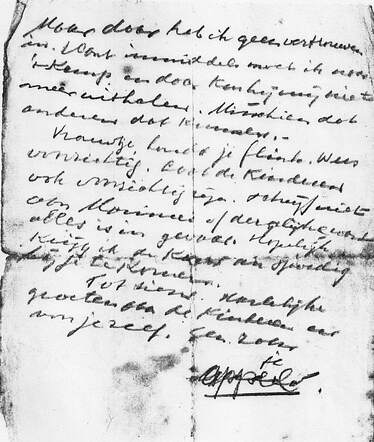 Maar daar heb ik geen vertrouwen
in. Want inmiddels moet ik naar
't Kamp en daar kan hij mij niet
meer uithalen. Misschien dat
anderen dat kunnen.-
Vrouwtje houd je flink. Wees
voorzichtig. Laat de kinderen
ook voorzichtig zijn. Schrijf niet
aan of dergelijke want
alles is in gevaar. Hopelijk
krijg ik de kans en spoedig
bij je te komen.
Tot ziens. Hartelijke
groeten aan de kinderen en
van jezelf. Een zoen
je